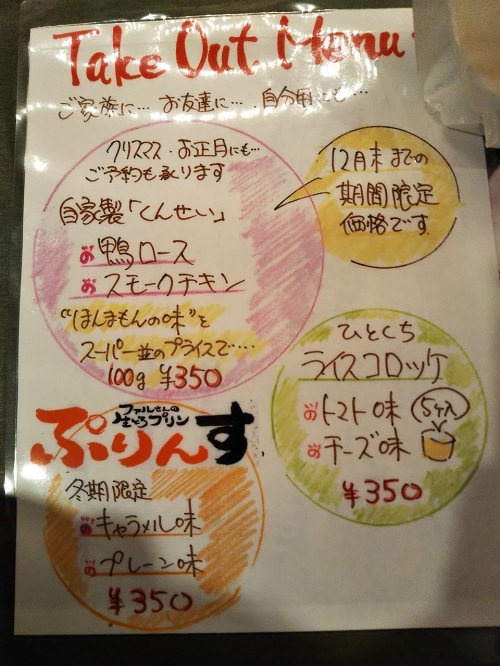 Take Out Menu
ご家族に… お友達に… 自分用にも…
クリスマス・お正月にも…
ご予約も承ります
12月末までの
期間限定
価格です
自家製「くんせい」
鴨ロース
スモークチキン
"ほんまもんの味"を
スーパー並のプライスで….
100g ¥350
ひとくち
ライスコロッケ
トマト味
5ケ入
チーズ味
¥350
ファルさんの
生とろプリン
ぷりんす
冬期限定
キャラメル味
プレーン味
¥350